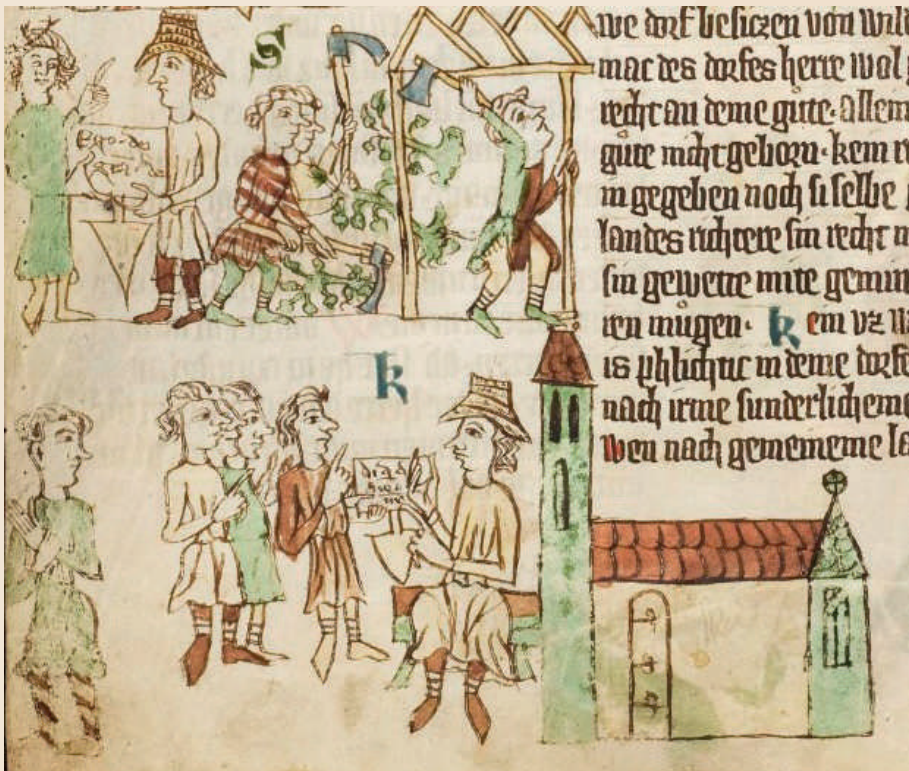 S
k
we dorf besiczen von wild
mac des dorfes herre wol
recht an deme gůte. allem
gůte nicht geborn. kein
in gegeben noch si selbe
landes richtere sin recht
sin gewette mite gemin
ren můgen. kein vz
is phlichtic in deme dorfe
nach irme sunderlicheme
wen nach gemeineme la